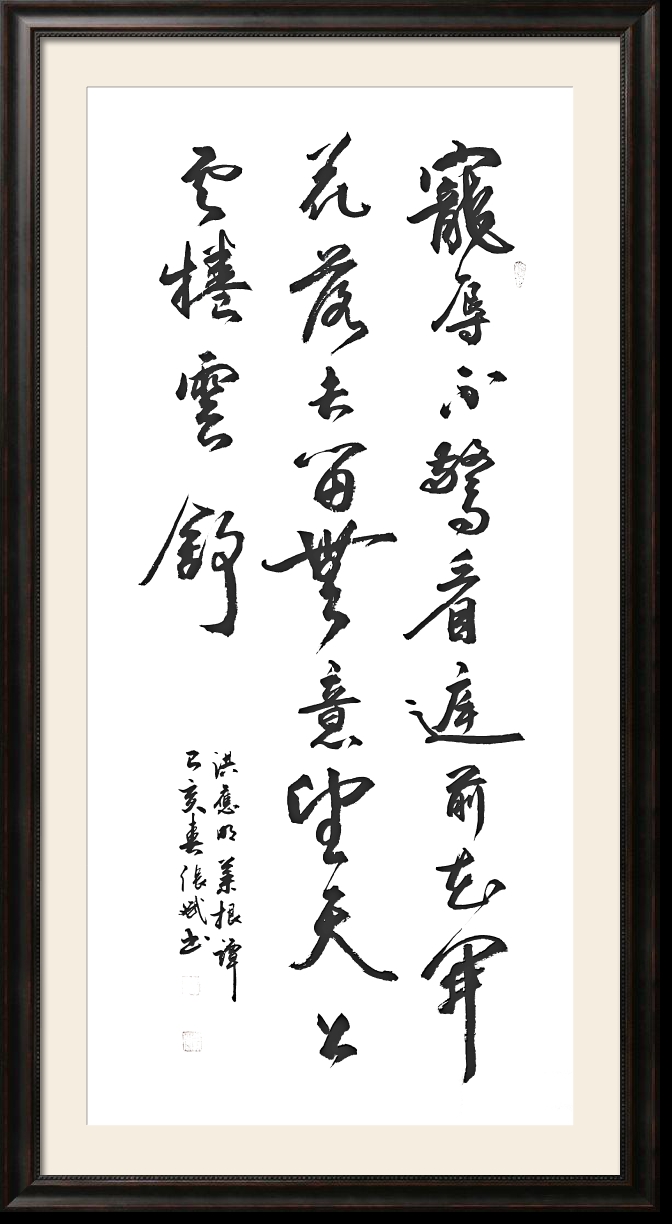 寵辱不驚看庭前花開
花落去留無意望天公
雲捲雲舒
洪應明菜根譚
己亥春張斌書